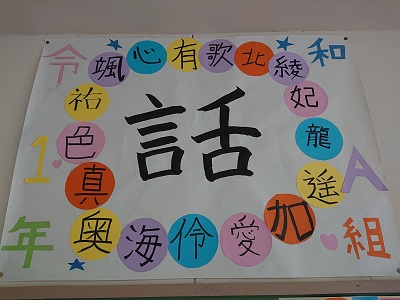 令和
1年A組
話
颯心有歌北綾
祐妃
色龍
真遥
奥海伶愛加